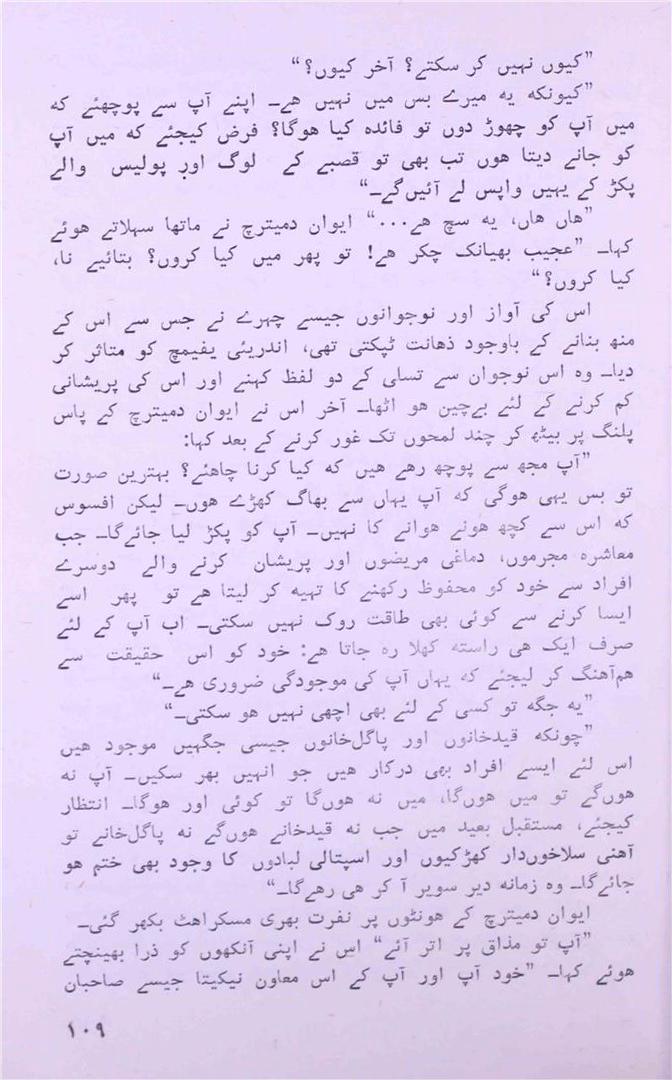 ”کیوں نہیں کر سکتے؟ آخر کیوں؟“
”کیونکہ یہ میرے بس میں نہیں ہے۔ اپنے آپ سے پوچھئے کہ
میں آپ کو چھوڑ دوں تو فائدہ کیا ہوگا؟ فرض کیجئے کہ میں آپ
کو جانے دیتا ہوں تب بھی تو قصبے کے لوگ اور پولیس والے
پکڑ کے یہیں واپس لے آئیں گے۔“
”ہاں ہاں، یہ سچ ہے...“ ایوان دمیترچ نے ماتھا سہلاتے ہوئے
کہا۔ ”عجیب بھیانک چکر ہے! تو پھر میں کیا کروں؟ بتائیے نا،
کیا کروں؟“
اس کی آواز اور نوجوانوں جیسے چہرے نے جس سے اس کے
منھ بنانے کے باوجود ذہانت ٹپکتی تھی، اندریئی یفیمچ کو متاثر کر
دیا۔ وہ اس نوجوان سے تسلی کے دو لفظ کہنے اور اس کی پریشانی
کم کرنے کے لئے بے چین ہو اٹھا۔ آخر اس نے ایوان دمیترچ کے پاس
پلنگ پر بیٹھ کر چند لمحوں تک غور کرنے کے بعد کہا:
”آپ مجھ سے پوچھ رہے ہیں کہ کیا کرنا چاہئے؟ بہترین صورت
تو بس یہی ہوگی کہ آپ یہاں سے بھاگ کھڑے ہوں۔ لیکن افسوس
کہ اس سے کچھ ہونے ہوانے کا نہیں۔ آپ کو پکڑ لیا جائے گا۔ جب
معاشرہ مجرموں، دماغی مریضوں اور پریشان کرنے والے دوسرے
افراد سے خود کو محفوظ رکھنے کا تہیہ کر لیتا ہے تو پھر اسے
ایسا کرنے سے کوئی بھی طاقت روک نہیں سکتی۔ اب آپ کے لئے
صرف ایک ہی راستہ کھلا رہ جاتا ہے: خود کو اس حقیقت سے
ہم آہنگ کر لیجئے کہ یہاں آپ کی موجودگی ضروری ہے۔“
”یہ جگہ تو کسی کے لئے بھی اچھی نہیں ہو سکتی۔“
”چونکہ قیدخانوں اور پاگل خانوں جیسی جگہیں موجود ہیں
اس لئے ایسے افراد بھی درکار ہیں جو انہیں بھر سکیں۔ آپ نہ
ہوں گے تو میں ہوں گا، میں نہ ہوں گا تو کوئی اور ہوگا۔ انتظار
کیجئے، مستقبل بعید میں جب نہ قیدخانے ہوں گے نہ پاگل خانے تو
آہنی سلاخوں دار کھڑکیوں اور اسپتالی لبادوں کا وجود بھی ختم ہو
جائے گا۔ وہ زمانہ دیر سویر آ کر ہی رہے گا۔“
ایوان دمیترچ کے ہونٹوں پر نفرت بھری مسکراہٹ بکھر گئی۔
”آپ تو مذاق پر اتر آئے“ اس نے اپنی آنکھوں کو ذرا بھینچتے
ہوئے کہا۔ ”خود آپ اور آپ کے اس معاون نیکیتا جیسے صاحبان
۱۰۹